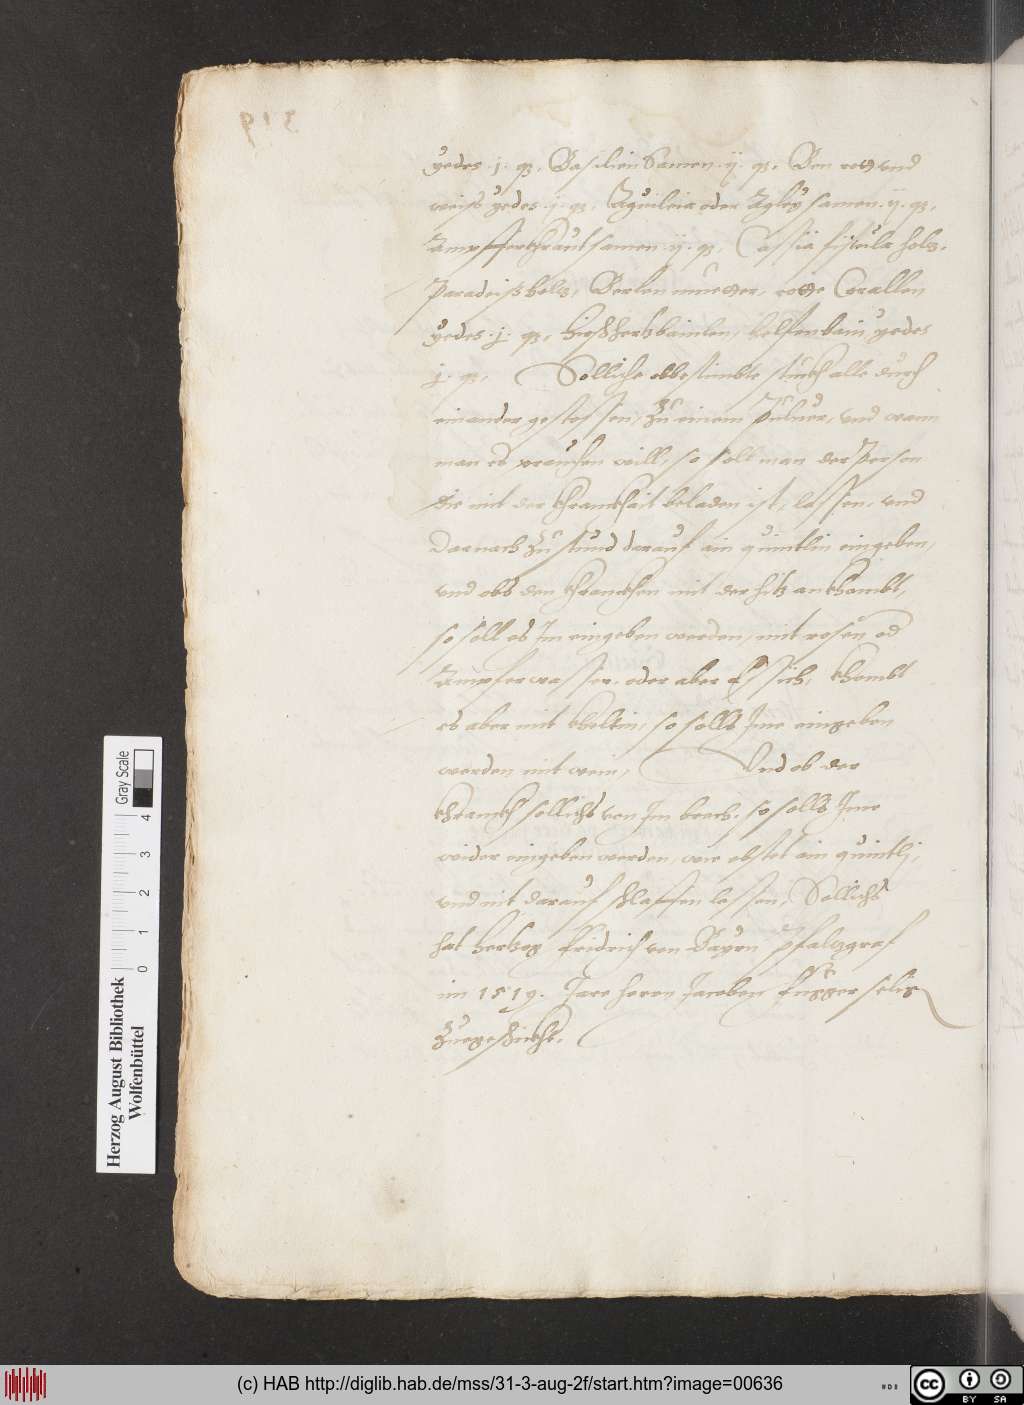 yedes .j. q3. Basilien Samen .ij. q3. Ben rott vnd
weiß yedes .j. q3. Aquileia oder Agley samen .ij. q3.
Ampfferkhraut samen .ij. q3. Cassia fistula holtz.
Paradeiß holtz, Berlen muetter, rotte Corallen
yedes .j. q3. hirschhertzbainlen, helfenbain yedes
j. q3. Solliche obbestimbte stuckh alle durch
einander gestossen, Zu einem Puluer, vnd wann
man es prauchen will, so soll man der Person
die mit der khranckhait beladen ist, lassen. vnd
darnach Zu stund darauf ain quintlin eingeben,
vnd obs den khranckhen mit der hitz ankhombt,
so soll es Im eingeben werden, mit rosen od
Ampferwasser. oder aber Essich, khombt
es aber mit kheltin, so solls Ime eingeben
werden mit wein, Vnd ob der
khranckh sollichs von Im brech. so solls Ime
wider eingeben werden, wie obstet ain quintlj,
vnd nit darauf schlaffen lassen, Sollichs
hat Hertzog Fridrich von Bayrn Pfaltzgraf
im 1519. Jare herrn Jacoben Fugger selig
Zuegeschickht.
319
Herzog August Bibliothek
Wolfenbüttel
0 1 2 3 4
Gray Scale
(c) HAB http://diglib.hab.de/mss/31-3-aug-2f/start.htm?image=00636
cc BY SA